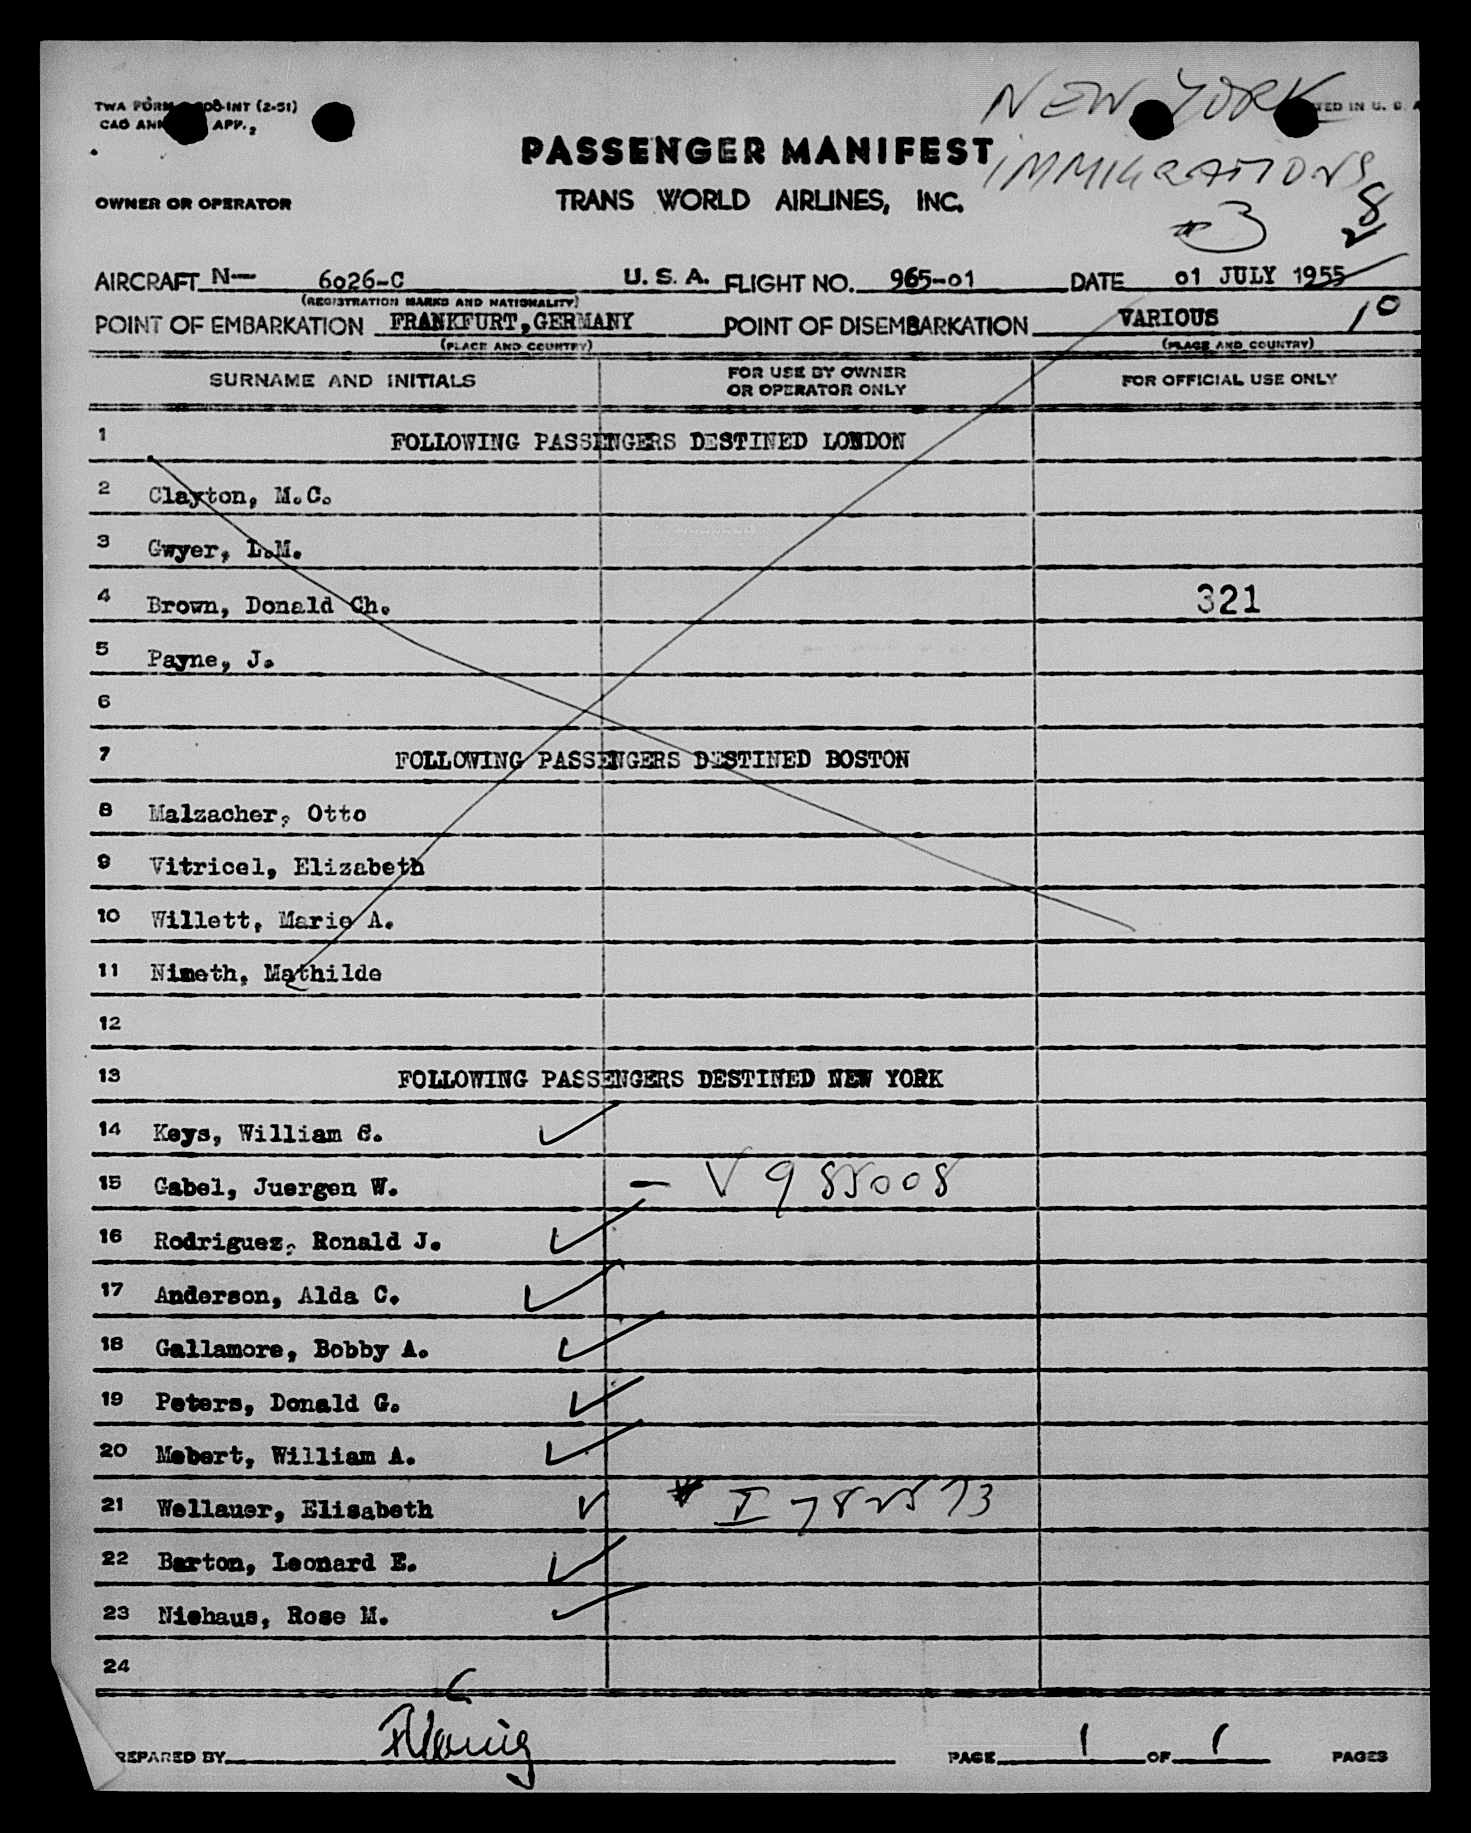 TWA FORM 08-INT (2-51)
CAO ANN APP. 2
TED IN U. S. A
NEW YORK
IMMIGRATIONS
PASSENGER MANIFEST
OWNER OR OPERATOR
TRANS WORLD AIRLINES, INC.
#3
8
2
AIRCRAFT N— 6026-C U. S. A. FLIGHT NO. 965-01 DATE 01 JULY 1955
(REGISTRATION MARKS AND NATIONALITY)
POINT OF EMBARKATION FRANKFURT, GERMANY POINT OF DISEMBARKATION VARIOUS 10
(PLACE AND COUNTRY) (PLACE AND COUNTRY)
SURNAME AND INITIALS FOR USE BY OWNER OR OPERATOR ONLY FOR OFFICIAL USE ONLY
1 FOLLOWING PASSENGERS DESTINED LONDON
2 Clayton, M.C.
3 Gwyer, L.M.
4 Brown, Donald Ch. 321
5 Payne, J.
6
7 FOLLOWING PASSENGERS DESTINED BOSTON
8 Malzacher, Otto
9 Vitricel, Elizabeth
10 Willett, Marie A.
11 Nimeth, Mathilde
12
13 FOLLOWING PASSENGERS DESTINED NEW YORK
14 Keys, William S.
15 Gabel, Juergen W. — V 985008
16 Rodriguez, Ronald J.
17 Anderson, Alda C.
18 Gallamore, Bobby A.
19 Peters, Donald G.
20 Mebert, William A.
21 Wellauer, Elisabeth * I 782573
22 Barton, Leonard E.
23 Niehaus, Rose M.
24
PREPARED BY PAGE 1 OF 1 PAGES